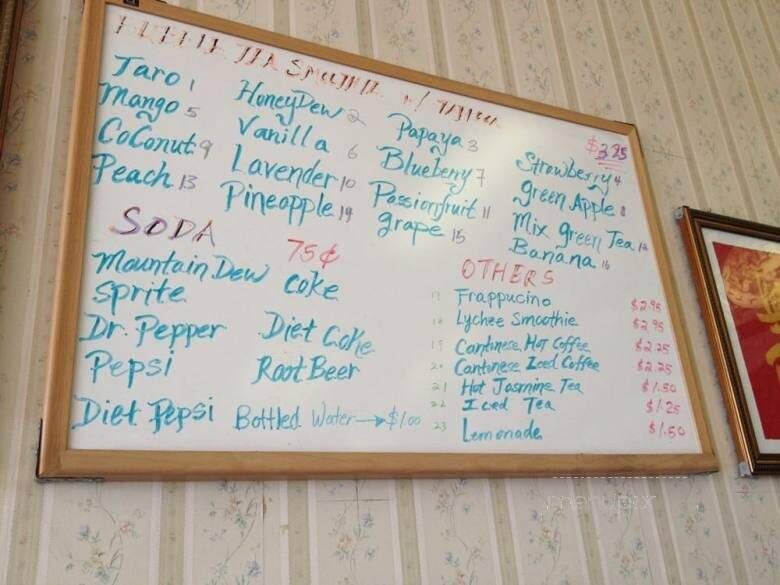 SMOOTHIE w/
$3.95
Taro 1 HoneyDew 2 Papaya 3 Strawberry 4
Mango 5 Vanilla 6 Blueberry 7 green Apple 8
CoConut 9 Lavender 10 Passionfruit 11 Mix green Tea 12
Peach 13 Pineapple 14 grape 15 Banana 16
SODA 75¢
Mountain Dew Coke
Sprite
Dr. Pepper Diet Coke
Pepsi Root Beer
Diet Pepsi Bottled Water → $1.00
OTHERS
17 Frappucino $2.95
18 Lychee Smoothie $2.95
19 Cantinese Hot Coffee $2.25
20 Cantinese Iced Coffee $2.25
21 Hot Jasmine Tea $1.50
22 Iced Tea $1.25
23 Lemonade $1.50
menupix